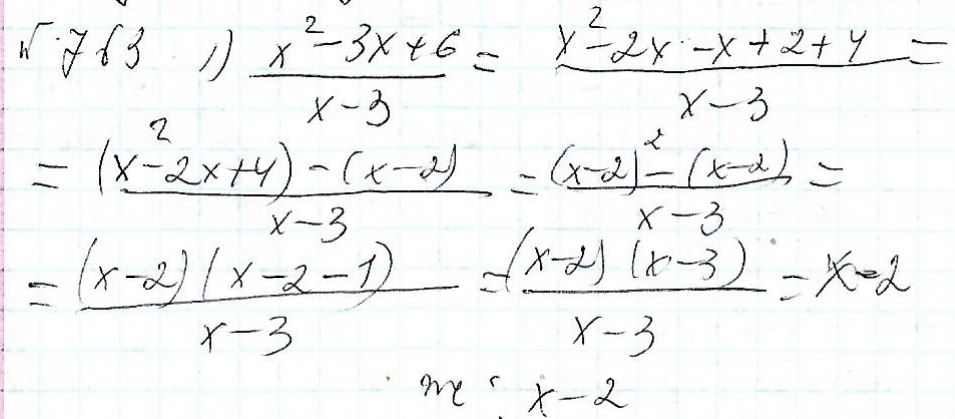 № 763 1) (x² - 3x + 6)/(x - 3) = (x² - 2x - x + 2 + 4)/(x - 3) =
= ((x² - 2x + 4) - (x - 2))/(x - 3) = ((x - 2)² - (x - 2))/(x - 3) =
= (x - 2)(x - 2 - 1)/(x - 3) = (x - 2)(x - 3)/(x - 3) = x - 2
x - 2